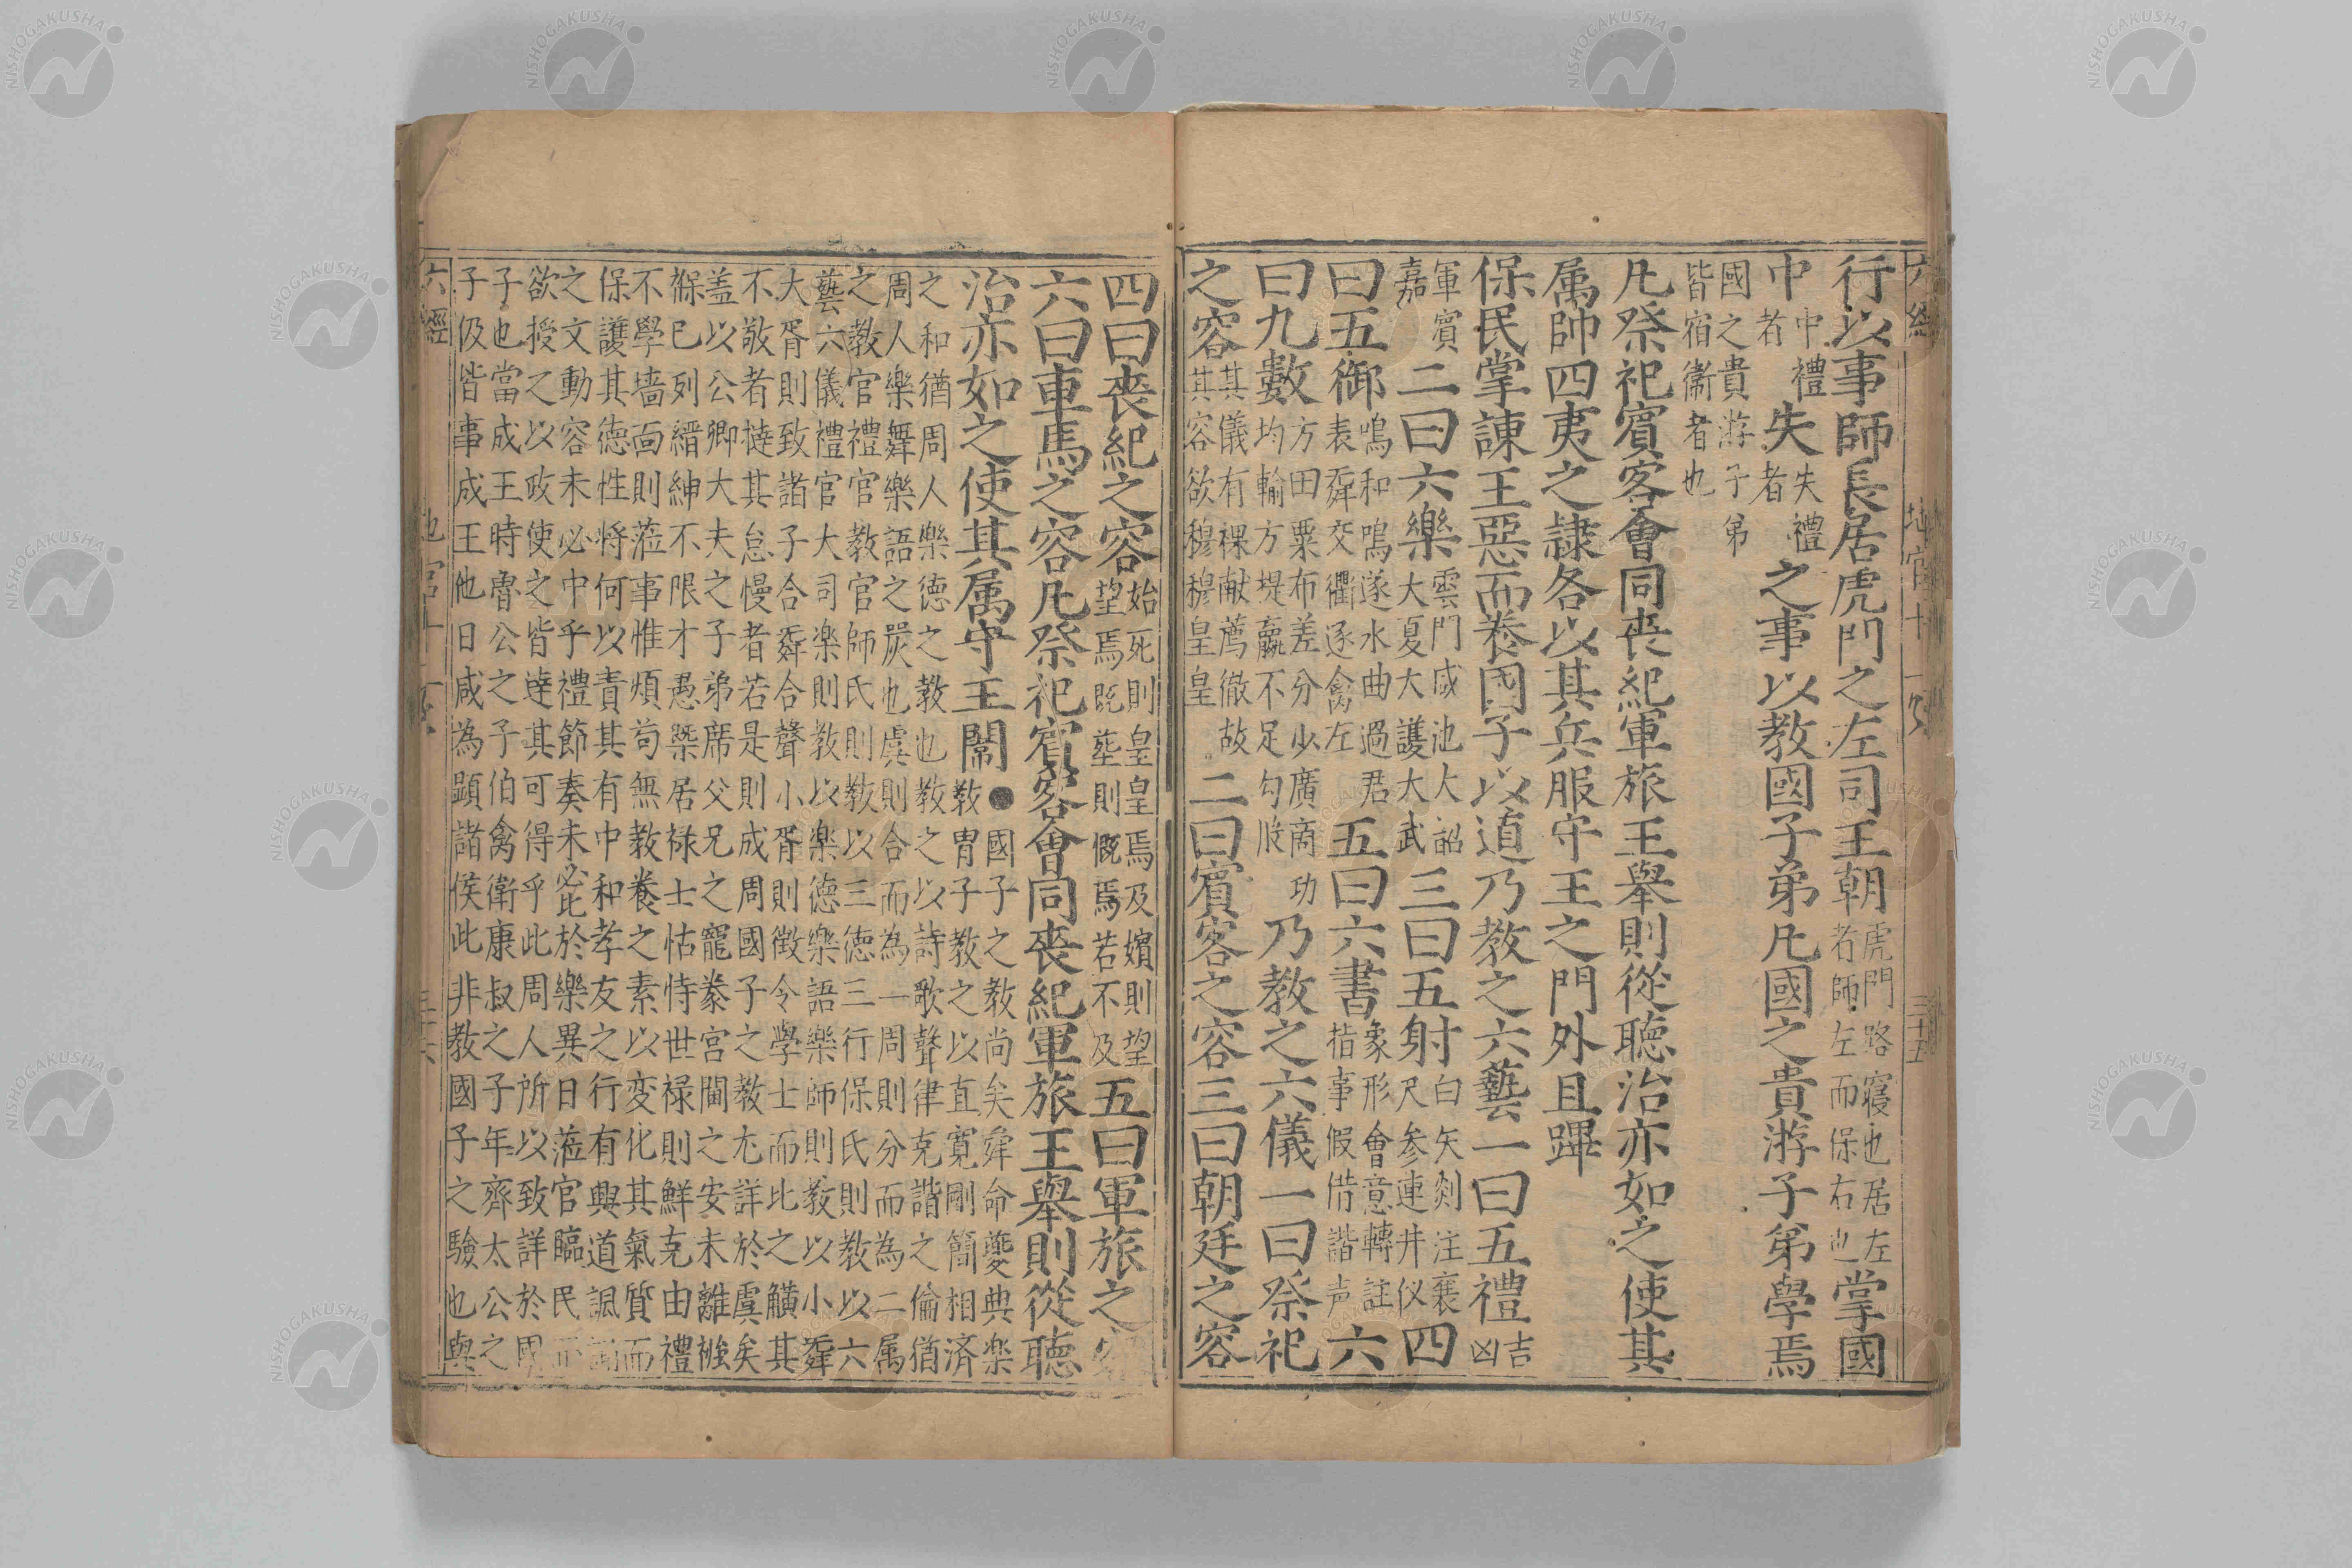 行以事師長居虎門之左司王朝虎門路寢也居左者師左而保右也掌國
中中禮者失失禮者之事以教國子弟凡國之貴游子弟學焉
國之貴游子弟皆宿衞者也
凡祭祀賓客會同丧紀軍旅王舉則從聽治亦如之使其
属帥四夷之隷各以其兵服守王之門外且蹕
保民掌諫王惡而养國子以道乃教之六藝一曰五禮吉凶
軍賓嘉二曰六樂雲門咸池大韶大夏大護大武三曰五射白矢剡注襄尺参連井仪四
曰五御鳴和鳴遂水曲過君表舜交衢逐禽左五曰六書象形會意轉註指事假借諧声六
曰九數方田粟布差分少廣商功均輸方堤贏不足勾股乃教之六儀一曰祭祀
之容其儀有祼献薦徹故其容欲穆穆皇皇二曰賓客之容三曰朝廷之容
四曰丧紀之容始死則皇皇焉及嬪則望望焉既塟則慨焉若不及五曰軍旅之
六曰車馬之容凡祭祀賓客會同丧紀軍旅王舉則從聽
治亦如之使其属守王闈●國子之教尚矣舜命夔典楽教胄子教之以直寬剛簡相済
之和猶周人樂德之教也教之以詩歌聲律克諧之倫猶
周人樂舞樂語之炭也虞則合而為一周則分而為二属
之教官禮官教官師氏則教以三徳三行保氏則教以六
藝六儀禮官大司楽則教以楽德樂語樂師則教以小舜
大胥則致諸子合舜合聲小胥則徴令學士而比之觵其
不敬者撻其怠慢者若是則成周國子之教尤詳於虞矣
盖以公卿大夫之子弟席父兄之寵豢宮閫之安未離襁
褓已列縉紳不限才愚槩居禄士怙恃世禄則鮮克由禮
不學墙面則蒞事惟煩苟無教養之素以变化其氣質而
保護其徳性将何以責其有中和孝友之行有興道諷
之文動容未必中乎禮節奏未必比於樂異日蒞官臨民
欲授之以政使之皆達其可得乎此周人所以致詳於國
子也當成王時魯公之子伯禽衛康叔之子年齊太公之
子伋皆事成王他日咸為顕諸侯此非教國子之驗也與
六經
地官十一
三十五
六經
三十六
NISHOGAKUSHA